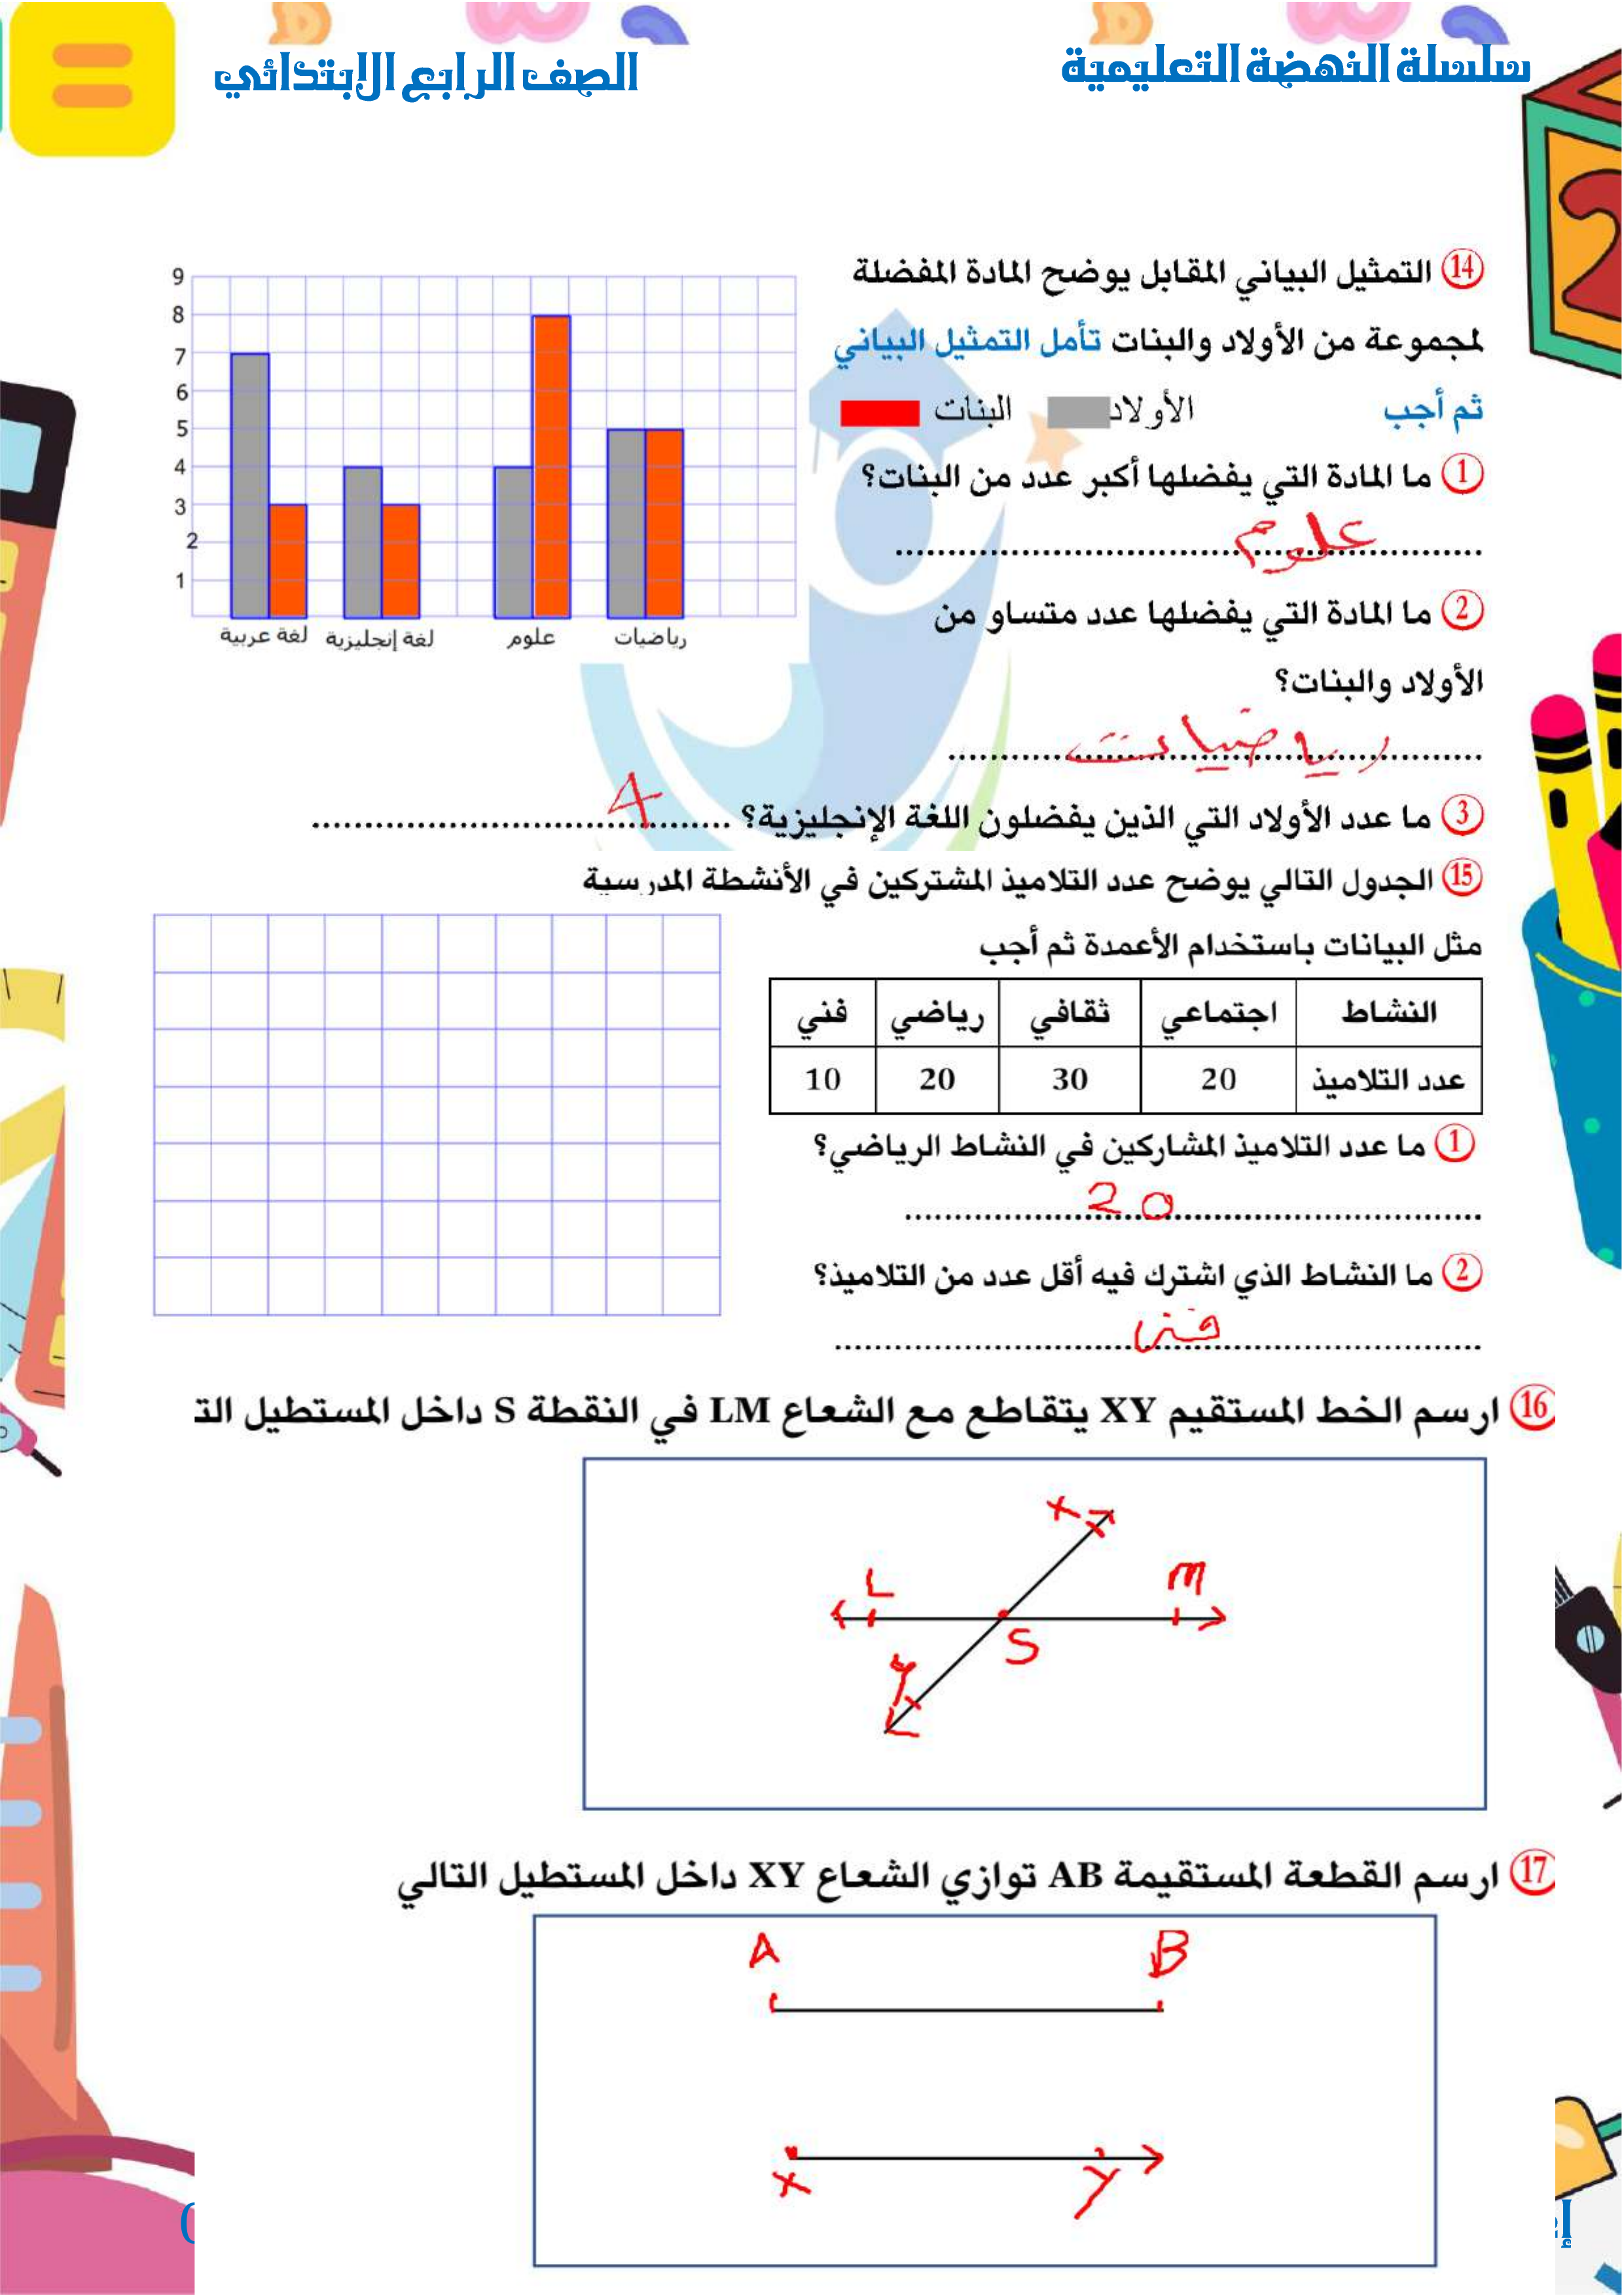 سلسلة النهضة التعليمية
الصف الرابع الابتدائي
14 التمثيل البياني المقابل يوضح المادة المفضلة
لمجموعة من الأولاد والبنات تأمل التمثيل البياني
ثم أجب الأولاد البنات
1 ما المادة التي يفضلها أكبر عدد من البنات؟
علوم
2 ما المادة التي يفضلها عدد متساو من
الأولاد والبنات؟
رياضيات
9
8
7
6
5
4
3
2
1
لغة عربية لغة إنجليزية علوم رياضيات
3 ما عدد الأولاد التي الذين يفضلون اللغة الإنجليزية؟ 4
15 الجدول التالي يوضح عدد التلاميذ المشتركين في الأنشطة المدرسية
مثل البيانات باستخدام الأعمدة ثم أجب
النشاط اجتماعي ثقافي رياضي فني
عدد التلاميذ 20 30 20 10
1 ما عدد التلاميذ المشاركين في النشاط الرياضي؟
20
2 ما النشاط الذي اشترك فيه أقل عدد من التلاميذ؟
فني
16 ارسم الخط المستقيم XY يتقاطع مع الشعاع LM في النقطة S داخل المستطيل الت
X
L M
S
Y
17 ارسم القطعة المستقيمة AB توازي الشعاع XY داخل المستطيل التالي
A B
X Y